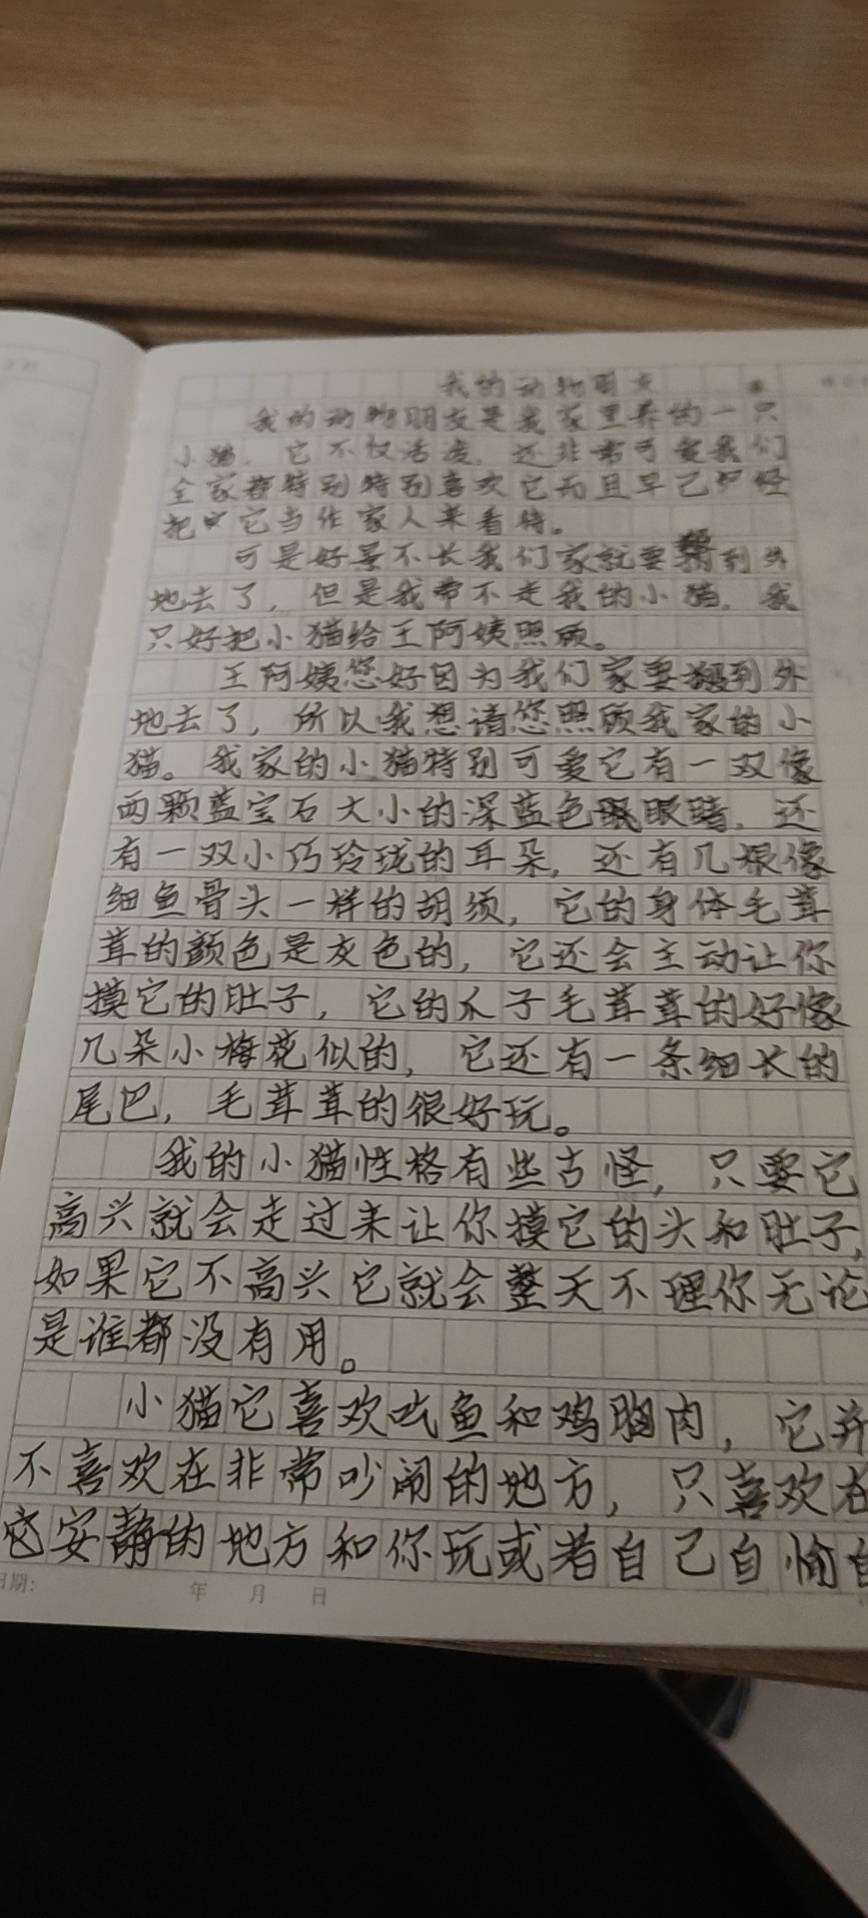 我的动物朋友
我的动物朋友是我家里养的一只
小猫，它不仅活泼，还非常可爱我们
全家都特别特别喜欢它而且早已经
把它当作家人来看待。
可是好景不长我们家就要搬到外
地去了，但是我带不走我的小猫，我
只好把小猫给王阿姨照顾。
王阿姨您好因为我们家要搬到外
地去了，所以我想请您照顾我家的小
猫。我家的小猫特别可爱它有一双像
两颗蓝宝石大小的深蓝色眼睛，还
有一双小巧玲珑的耳朵，还有几根像
细鱼骨头一样的胡须，它的身体毛茸
茸的颜色是灰色的，它还会主动让你
摸它的肚子，它的爪子毛茸茸的好像
几朵小梅花似的，它还有一条细长的
尾巴，毛茸茸的很好玩。
我的小猫性格有些古怪，只要它
高兴就会走过来让你摸它的头和肚子，
如果它不高兴它就会整天不理你无论
是谁都没有用。
小猫它喜欢吃鱼和鸡胸肉，它并
不喜欢在非常吵闹的地方，只喜欢在
它安静的地方和你玩或者自己自愉自
日期：
年 月 日